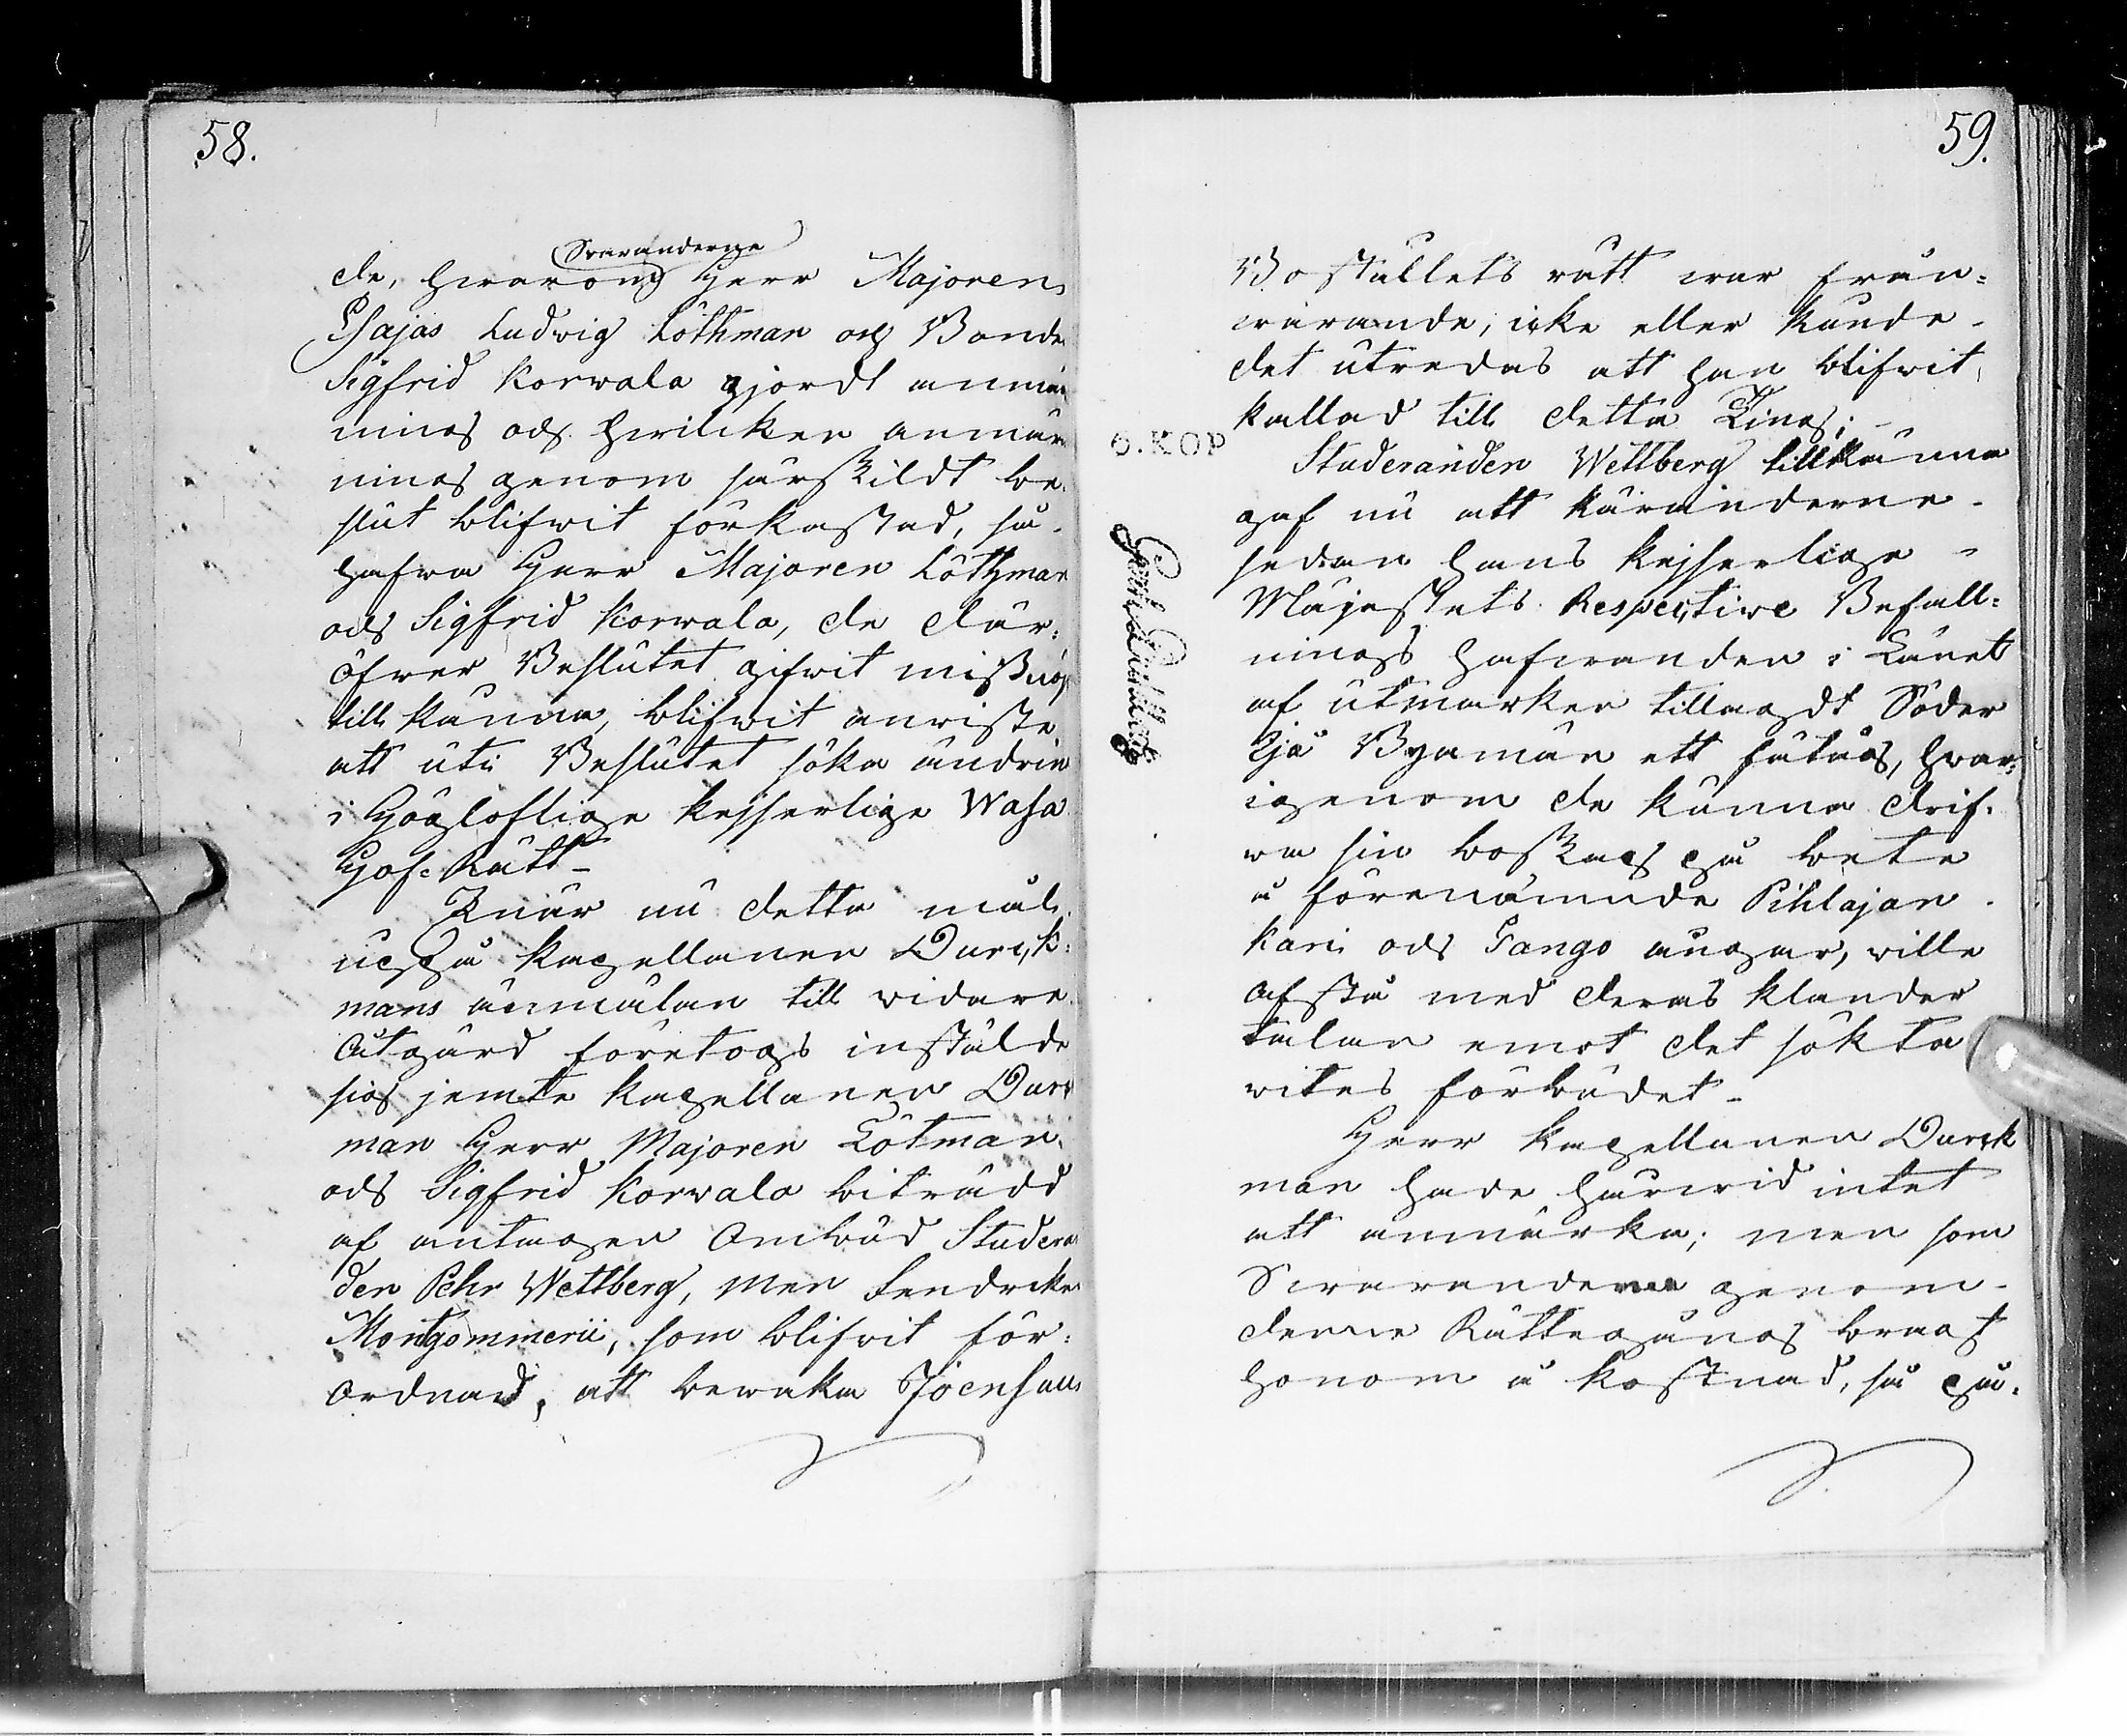 58.
Svaranderne
de, hvarom Herr Majoren
Esajas Ludvig Löthman och Bonden
Sigfrid Korwala gjordt anmär
ning och hvilcken anmärk
ning genom särskildt be-
slut blifwit förkastad, så
hafwa Herr Majoren Löthman
och Sigfrid Korwala, de der-
öfwer Beslutet gifwit missnöje
till känna, blifwit anviste
att uti Beslutet söka ändrin
i Höglofliga Kejserlige Wasa
Hof-Rätt –
När nu detta mål
uppå Kapellanen Durck-
mans anmälan till widare
åtgärd företogs instälde
sig jemte Kapellanen Durck
man Herr Majoren Lötman
och Sigfrid Korwala biträdd
af antagen Ombud Studeran
den Pehr Wettberg, men Fendricken
Montgommerii, som blifvit för-
ordnad, att bewaka Joensuu
59.
Boställets rätt war från-
warande, icke eller kunde
det utredas att han blifwit
kallad till detta Ting; –
6. KOP
Studeranden Wettberg tillkänna
gaf nu att Käranderne
sedan Hans Kejserliga –
Majestets Respective Befall-
nings hafwanden i Länet
af utmarken tillagdt Söder
Ejä Byamän ett fätåg, hwar-
igenom de kunna drif-
wa sin boskap på bete
å förenämnde Pihlajan
Kari och Tango ängar, wille
afstå med deras klander
talan emot det sökta
wites förbudet –
Herr Kapellanen Durck
man hade härwid intet
att anmärka; men som
Swaranderne genom
denne Rättegång bragt
honom i kostnad, så på-